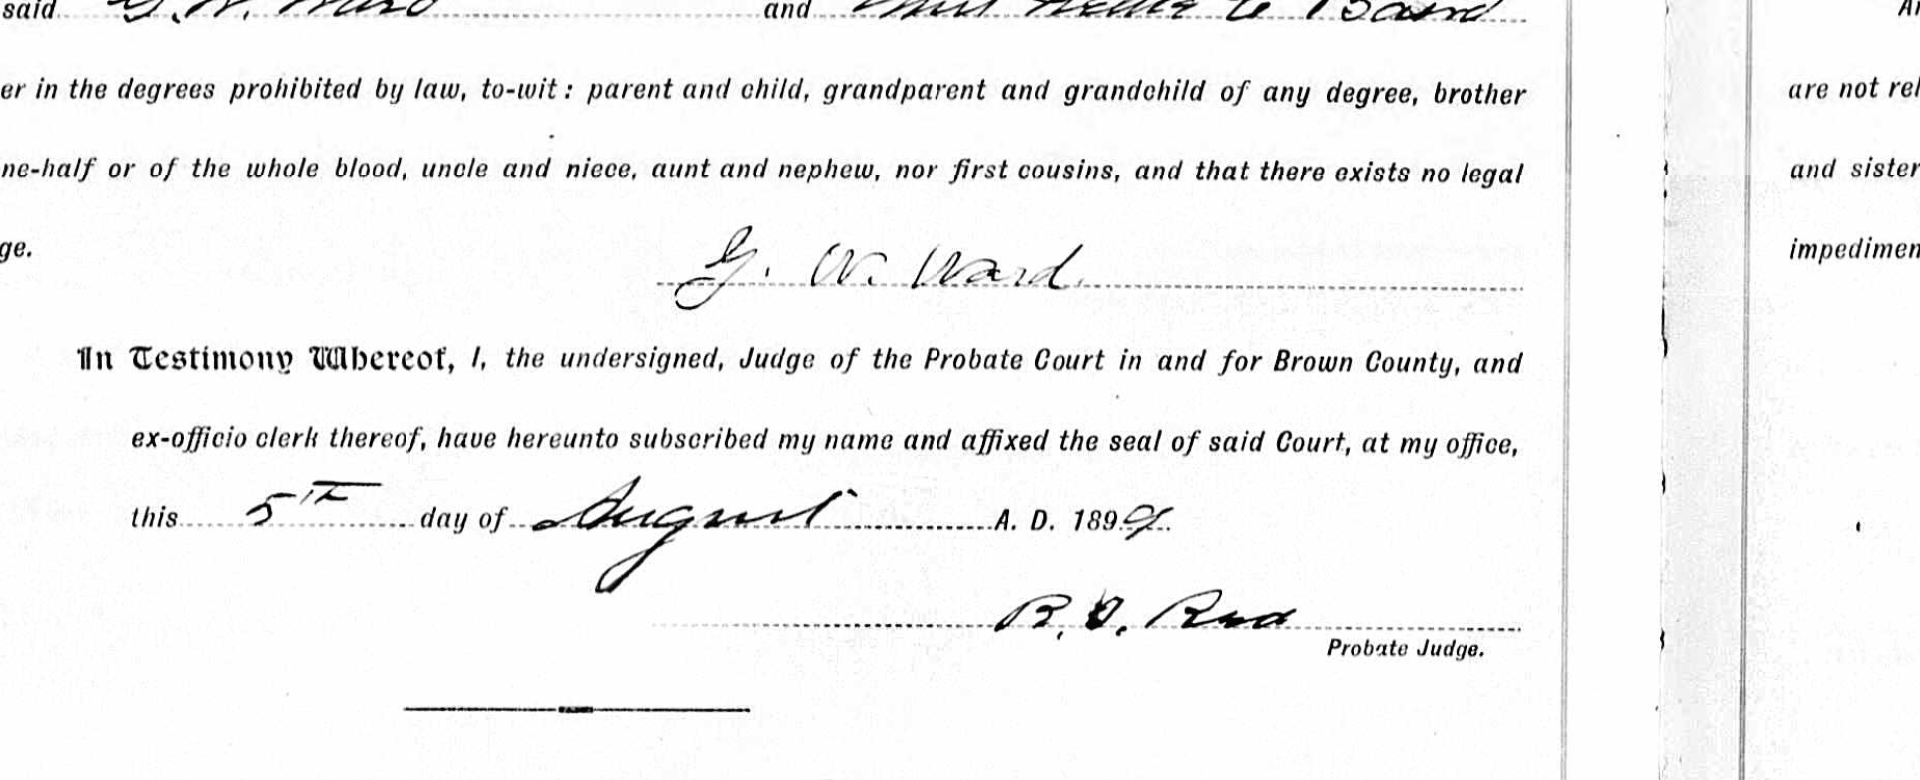 said G. W. Ward and Miss Nellie C Baird
er in the degrees prohibited by law, to-wit: parent and child, grandparent and grandchild of any degree, brother
ne-half or of the whole blood, uncle and niece, aunt and nephew, nor first cousins, and that there exists no legal
ge.
G. W. Ward.
In Testimony Whereof, I, the undersigned, Judge of the Probate Court in and for Brown County, and
ex-officio clerk thereof, have hereunto subscribed my name and affixed the seal of said Court, at my office,
this 5TH day of August A. D. 1899.
R. O. Reed
Probate Judge.
are not rel
and sister
impedimen